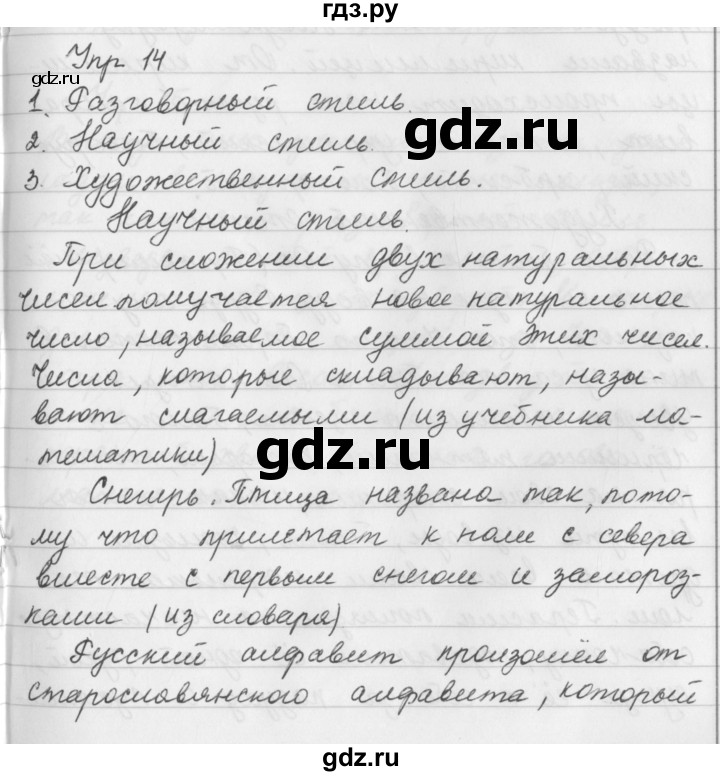 гдз.ру
Упр 14
gdz.ru
1. Разговорный стиль.
gdz.ru
2. Научный стиль.
3. Художественный стиль.
Научный стиль.
При сложении двух натуральных
чисел получается новое натуральное
число, называемое суммой этих чисел.
Числа, которые складывают, назы-
вают слагаемыми (из учебника ма-
gdz.ru
тематики)
Снегирь. Птица названа так, пото-
му что прилетает к нам с севера
вместе с первым снегом и замороз-
ками (из словаря)
Русский алфавит произошёл от
старославянского алфавита, который
gdz.ru